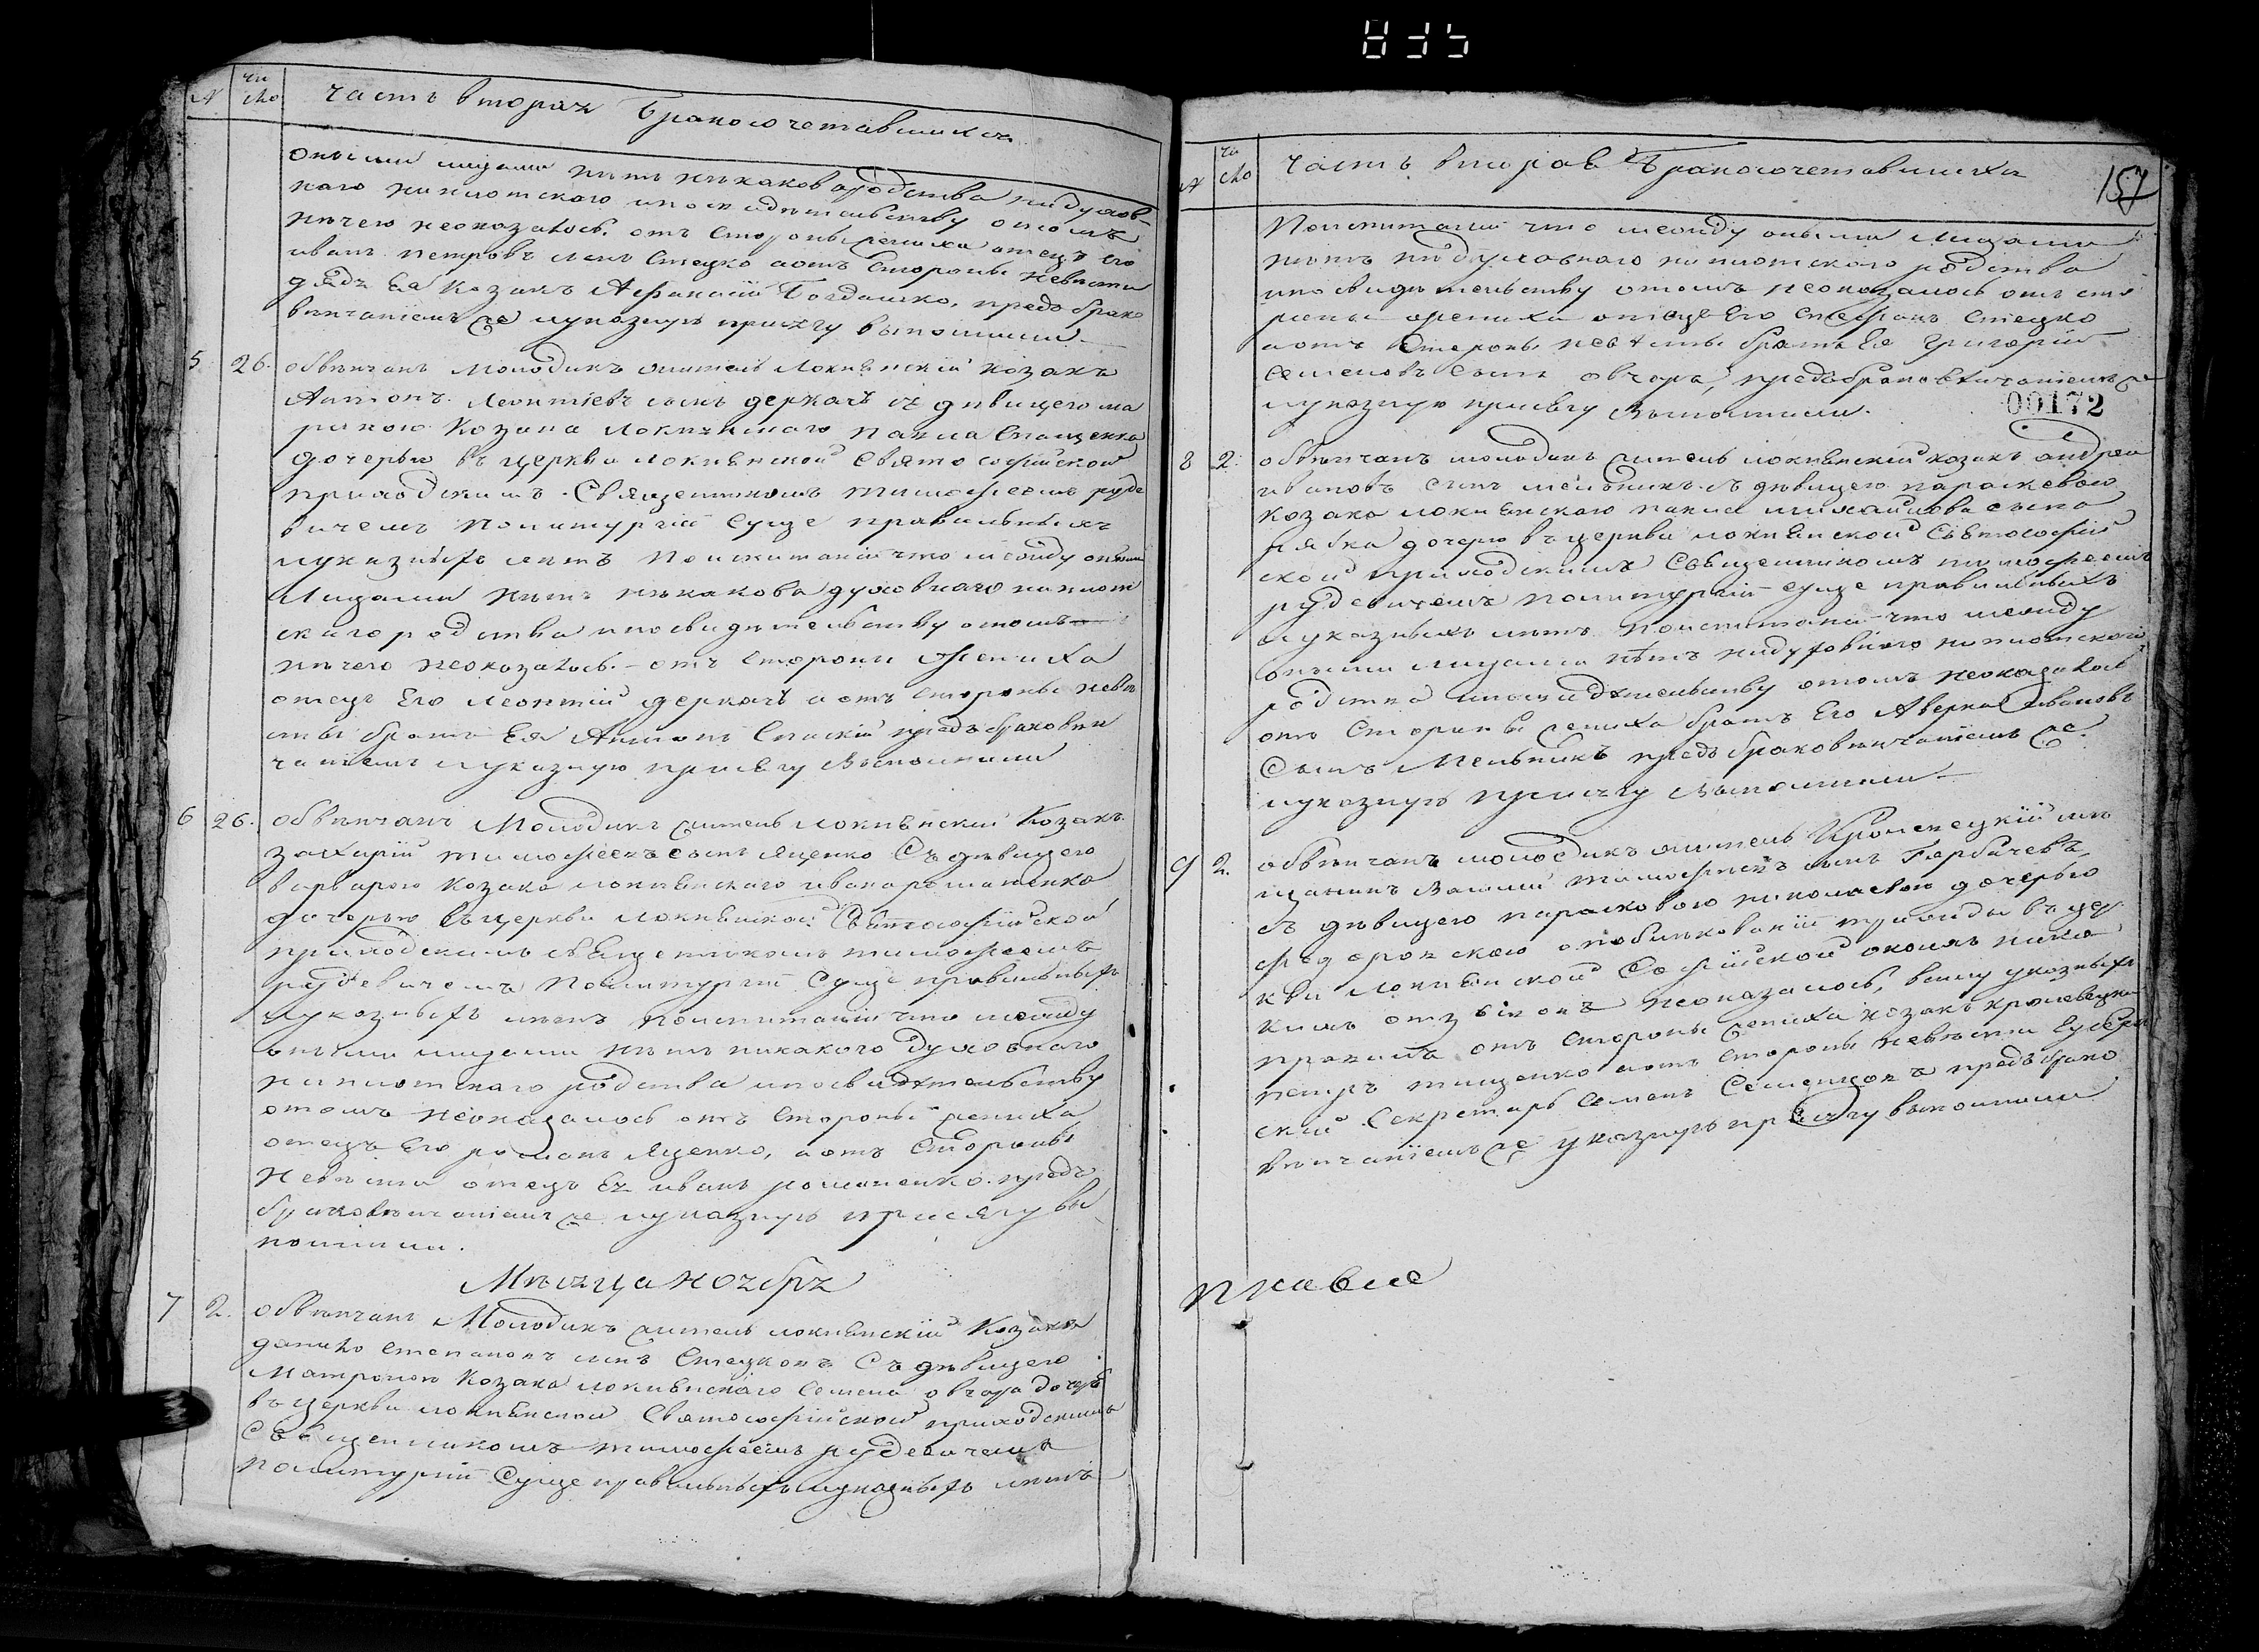 835
№ чи
сло
часть вторая Бракосочетавшихся
оными лицами нетъ никаковародства нидухов
наго ниплотскаго ипосвидѣтельству отомъ
ничего неоказалось. отъ Стороны жениха отецъ его
иванъ петровъ сынъ Стецко аотъ Стороны невѣсты
дядя Ея Козакъ Афанасій Богдашко, предъ брако
вѣнчаніемъ же иуказную присягу выполнили
5 26. обвѣнчанъ молодикъ житель локнѣнскій козакъ
Антонъ Леонтіевъ сынъ деркачъ съ дѣвицею ма
риною Козака локнѣнскаго павла Спащенка
дочерью въ церкви локнѣнской Святософійской
приходскимъ Священникомъ тимофеемъ руде
вичемъ политургіи суще правильныхъ
иуказныхъ лѣтъ поискитаніи что между оными
лицами нетъ никакова духовнаго ниплот
скаго родства ипосвидѣтельству отомъ
ничего неоказалось. отъ Стороны жениха
отецъ Его леонтій деркачъ аотъ Стороны невѣ
сты братъ Ея Антонъ Спаскій предъ браковѣн
чаніемъ иуказную присягу выполнили
6 26. обвѣнчанъ Молодикъ житель локнѣнскій Козакъ
захарій тимофеевъ сынъ яценко Съ дѣвицею
варварою козака локнѣнскаго ивана романенка
дочерью въ церкви локнѣнской Святософійской
приходскимъ священникомъ тимофеемъ
рудевичемъ политургіи Суще правильныхъ
иуказныхъ летъ поискитаніи что между
оными лицами нетъ никакого духовнаго
ниплотскаго родства ипосвидѣтельству
отомъ неоказалось отъ Стороны жениха
отецъ Его романъ яценко, аотъ Стороны
невѣсты отецъ Ея иванъ романенко. предъ
браковѣнчаніемъ же иуказную присягу вы
полнили.
Мѣсяца ноября
7 2. обвѣнчанъ Молодикъ житель локнѣнскій Козакъ
данило степановъ сынъ Стецковъ Съ дѣвицею
Матроною Козака локнѣнскаго Семена овчара дочерью
въ церкви локнѣнской Святософійской приходскимъ
Священникомъ тимофеемъ рудевичемъ
политургіи Суще правильныхъ иуказныхъ лѣтъ
№ чи
сло
часть вторая Бракосочетавшихся
157
поискитаніи что между оными лицами
нетъ нидуховнаго ниплотскаго родства
ипосвидѣтельству отомъ неоказалось отъ сто
роны жениха отецъ Его Стефанъ Стецко
аотъ Стороны невѣсты братъ Ея Григорій
Семеновъ сынъ овчаръ, предъ браковѣнчаніемъ же
иуказную присягу Выполнили.
00172
8 2. обвѣнчанъ молодикъ житель локнѣнскій козакъ андрей
ивановъ сынъ мельникъ съ дѣвицею параскевою
козака локнѣнскаго павла михайлова сына
рябка дочерю въ церкви локнѣнской Святософій
ской приходскимъ Священникомъ тимофеемъ
рудевичемъ политургіи суще правильныхъ
иуказныхъ лѣтъ поискитани что между
оными лицами нѣтъ нидуховнаго ниплотскаго
родства ипосвидѣтельству отомъ неоказалось
отъ Стороны жениха братъ Его Аверкій Ивановъ
Сынъ Мельникъ предъ браковѣнчаніемъ же
иуказную присягу выполнили
9 2. обвѣнчанъ молодикъ житель Кролевецкій мѣ
щанинъ Василій тимофеевъ сынъ Горбачевъ,
съ дѣвицею парасковою николаевою дочерью
федоровскою опобликованіи трижды въ цер
кви локнѣнской Софійской околѣ ника
кимъ отзывовъ неоказалось, влицу указныхъ
правилъ отъ Стороны жениха козакъ кролевецкій
петръ тищенко аотъ Стороны невѣсты Губерн
скій Секретарь Семенъ Семенцовъ предъ брако
вѣнчаніемъ же указную присягу выполнили